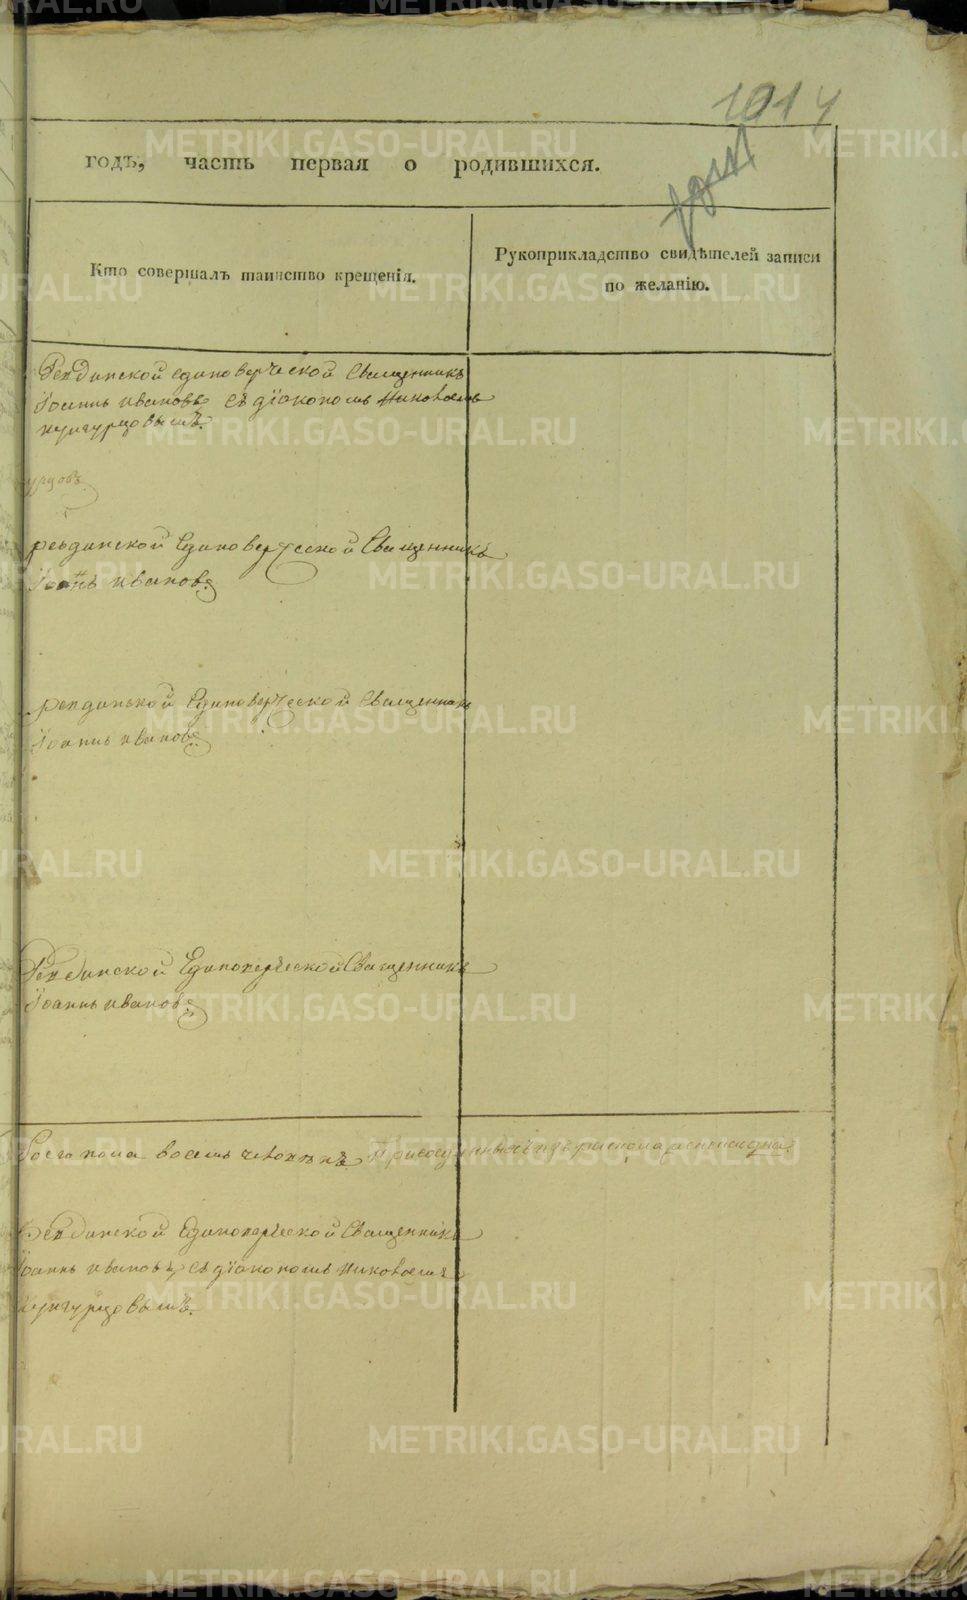 1014
годъ, часть первая о родившихся.
Кто совершалъ таинство крещенія.
Рукоприкладство свидѣтелей записи
по желанію.
Ревдинской единоверческой Священникъ
Іоаннъ Ивановъ съ діакономъ Николаемъ
Кунгурцовымъ.
урцовъ
ревдинской Единоверческой Священникъ
Іоаннъ Ивановъ
ревдинской Единоверческой Священникъ
Іоаннъ Ивановъ
Ревдинской Единоверческой Священникъ
Іоаннъ Ивановъ
пола восемь человекъ
Ревдинской Единоверческой Священникъ
Іоаннъ Ивановъ съ діакономъ Николаемъ
Кунгурцовымъ.
METRIKI.GASO-URAL.RU